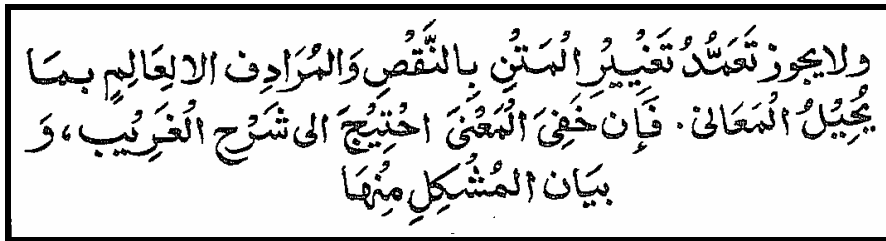 ولايجوز تَعَمُّدُ تَغْيِيْرِ الْمَتْنِ بِالنَّقْصِ وَالْمُرَادِف الا لِعَالِمٍ بما
يُحِيْلُ الْمَعَانى . فَإن خَفِىَ الْمَعْنىَ احْتِيْجَ الى شَرْح الْغَرِيْب ، وَ
بيَان المُشْكِلِ مِنْهَا